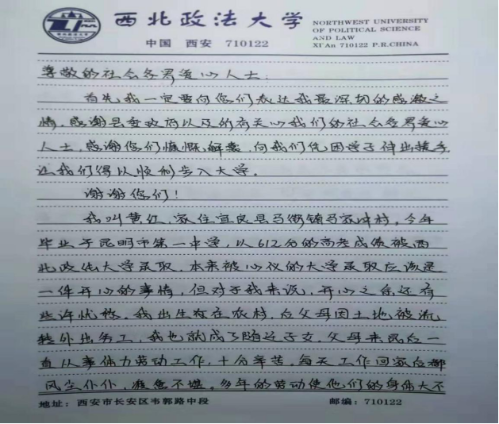 西北政法大学
NORTHWEST UNIVERSITY
OF POLITICAL SCIENCE
AND LAW
中国 西安 710122
XI'AN 710122 P.R.CHINA
尊敬的社会各界爱心人士:
首先我一定要向你们表达我最深切的感激之
情,感谢县委政府以及所有关心我们的社会各界爱心
人士,感谢你们慷慨解囊,向我们贫困学子伸出援手
让我们得以顺利步入大学。
谢谢你们!
我叫黄红,家住宜良县马街镇马家冲村,今年
毕业于昆明市第一中学,以612分的高考成绩被西
北政法大学录取,本来被心仪的大学录取应该是
一件开心的事情,但对于我来说,开心之余还有
些许忧愁。我出生在农村,后父母因土地被流
转外出务工,我也就成了随迁子女,父母来昆后一
直从事体力劳动工作,十分辛苦,每天工作回家后都
风尘仆仆,疲惫不堪,多年的劳动使他们的身体大不
地址:西安市长安区韦郭路中段
邮编:710122